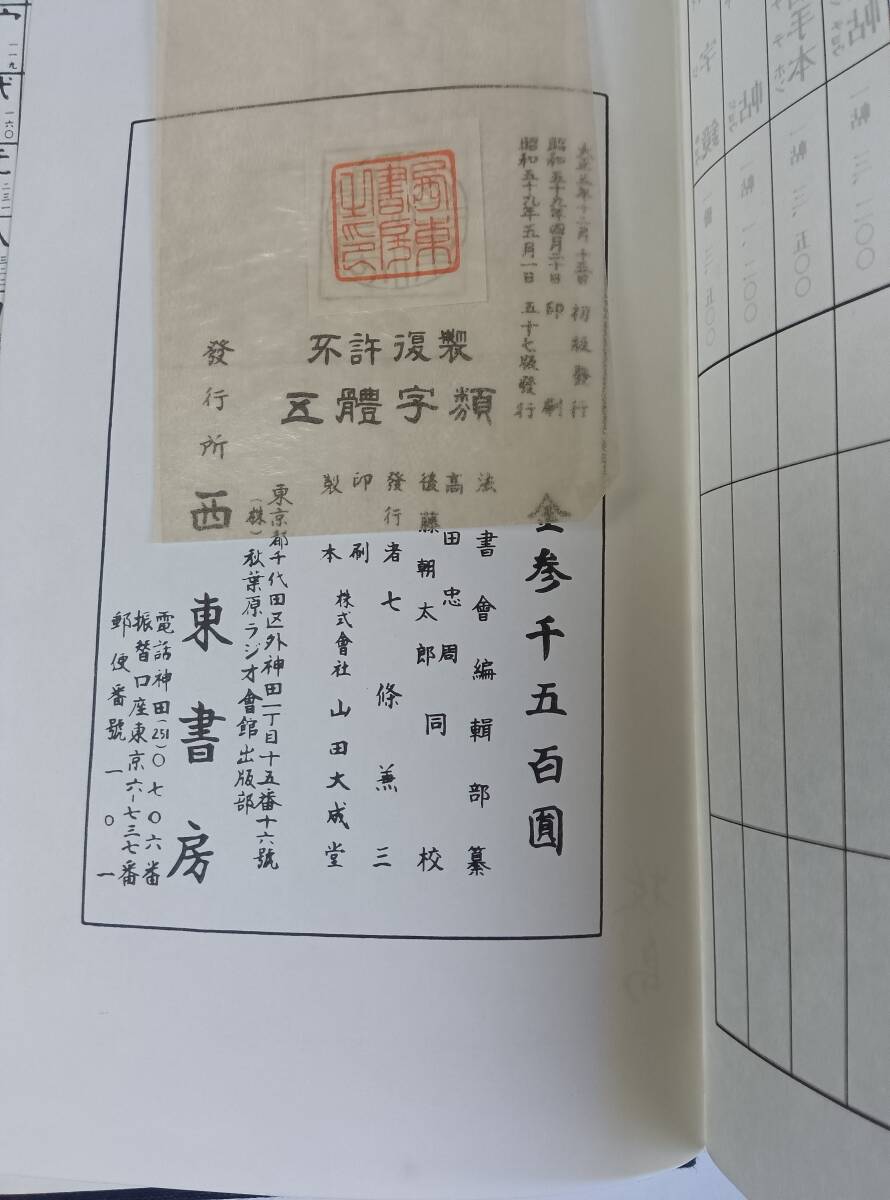 大正五年十二月十五日 初版發行
昭和五十九年四月二十日 印刷
昭和五十九年五月一日 五十七版發行
西東書房之印
不許復製
五體字類
金參千五百圓
法書會編輯部纂
高田忠周
後藤朝太郎同校
發行者七條兼三
印刷
製本
株式會社山田大成堂
東京都千代田区外神田一丁目十五番十六號
(株)秋葉原ラジオ會館出版部
發行所西東書房
電話神田(251)〇七〇六番
振替口座東京六-七三七番
郵便番號一〇一